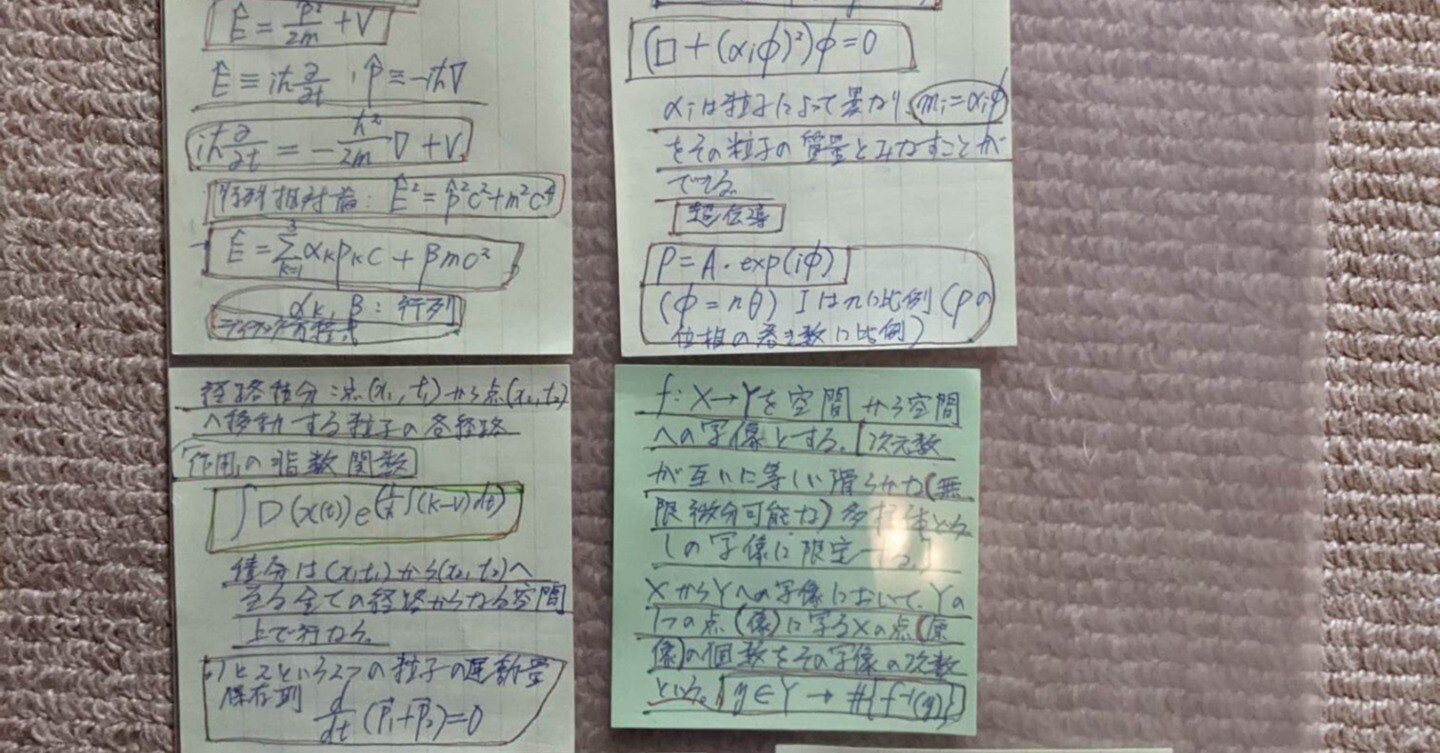 Ê = p̂²/2m + V
Ê ≡ iħ ∂/∂t , p̂ ≡ -iħ∇
iħ ∂/∂t = - ħ²/2m ∇ + V
相対論: Ê² = p̂²c² + m²c⁴
Ê = Σ_{k=1}^{3} α_K p_K c + βmc²
α_K, β : 行列
ディラック方程式
(□ + (αᵢφ)²)φ = 0
αᵢは粒子によって異なり、mᵢ = αᵢφ
をその粒子の質量とみなすことが
できる。
超伝導
P = A・exp(iφ)
(φ = nθ) Iはnに比例(Pの
位相の巻き数に比例)
経路積分:点(x₁, t₁)から点(x₂, t₂)
へ移動する粒子の各経路
「作用」の指数関数
∫D(x(t))e^(i/ħ ∫(K-V)dt)
積分は(x₁t₁)から(x₂, t₂)へ
至る全ての経路からなる空間
上で行なう。
1と2という2つの粒子の運動量
保存則
d/dt (P⃗₁+P⃗₂) = 0
f: X→Yを空間から空間
への写像とする。次元数
が互いに等しい滑らかな(無
限微分可能な)多様体
の写像に限定
XからYへの写像において、Yの
1つの点(像)に写るXの点(原
像)の個数をその写像の次数
という。y∈Y → #{f⁻¹(y)}